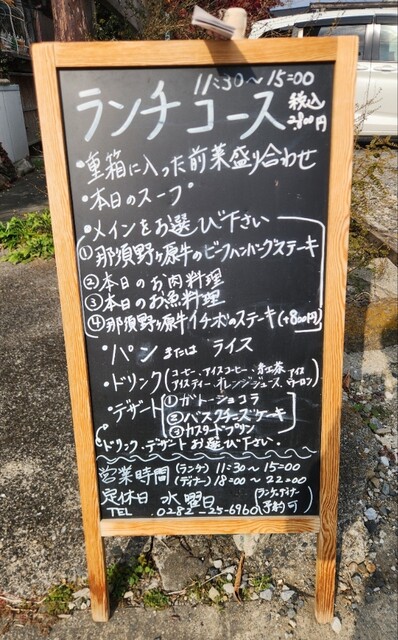 11:30〜15:00
ランチコース 税込 2800円
・重箱に入った前菜盛り合わせ
・本日のスープ
・メインをお選び下さい
①那須野ヶ原牛のビーフハンバーグステーキ
②本日のお肉料理
③本日のお魚料理
④那須野ヶ原牛イチボのステーキ(+800円)
・パン または ライス
・ドリンク(コーヒー、アイスコーヒー、紅茶、アイス
アイスティー、オレンジジュース、ウーロン)
・デザート ①ガトーショコラ
②バスクチーズケーキ
③カスタードプリン
ドリンク、デザートお選び下さい。
営業時間 (ランチ) 11:30〜15:00
(ディナー) 18:00〜22:00
定休日 水曜日 (ランチ・ディナー
TEL 0282-25-6960 予約可)